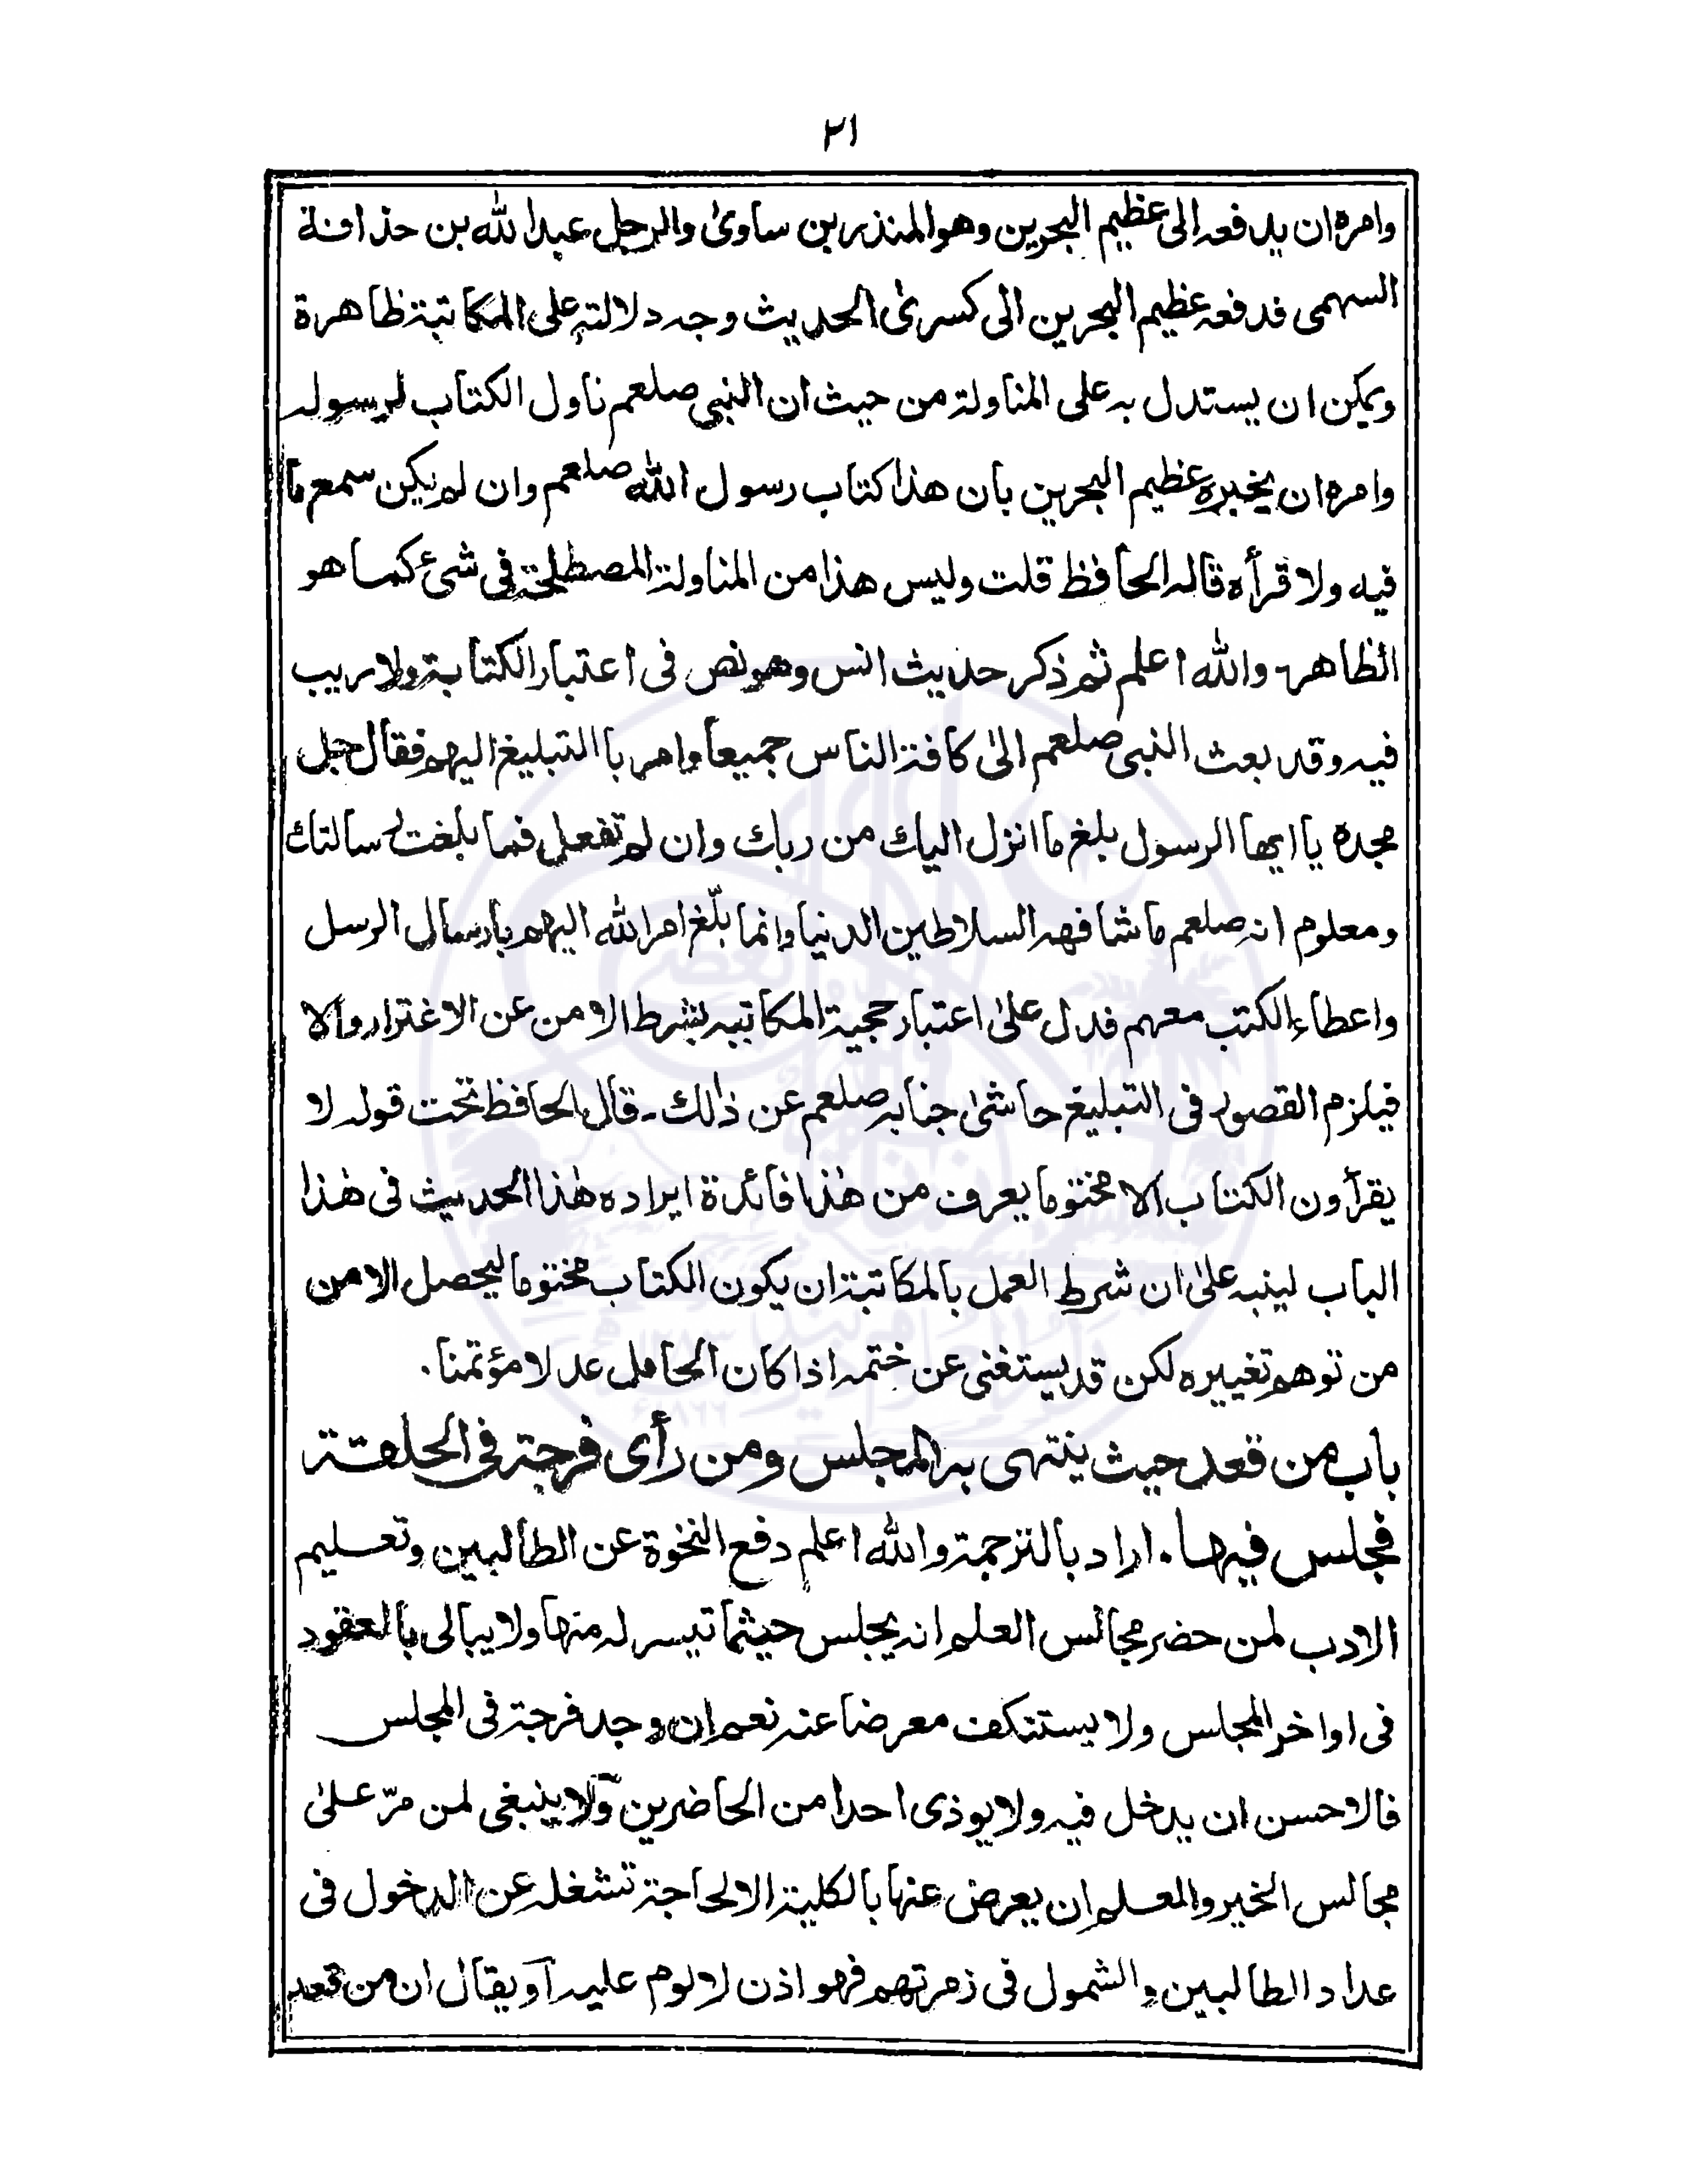 ٢١
وامره ان يدفعه الى عظيم البحرين وهو المنذر بن ساوىٰ والرجل عبد الله بن حذافة
السهمى فدفعه عظيم البحرين الى كسرىٰ الحديث وجه دلالته على المكاتبة ظاهرة
ويمكن ان يستدل به على المناولة من حيث ان النبى صلعم ناول الكتاب لرسوله
وامره ان يخبره عظيم البحرين بان هذا كتاب رسول الله صلعم وان لم يكن سمع ما
فيه ولا قرأه قاله الحافظ قلت وليس هذا من المناولة المصطلحة فى شئ كما هو
الظاهر والله اعلم ثم ذكر حديث انس وهو نص فى اعتبار الكتابة ولا ريب
فيه وقد بعث النبى صلعم الىٰ كافة الناس جميعا وامر با التبليغ اليهم فقال جل
مجده يا ايها الرسول بلغ ما انزل اليك من ربك وان لم تفعل فما بلغت رسالتك
ومعلوم انه صلعم ما شافهه السلاطين الدنيا وانما بلّغ امر الله اليهم بارسال الرسل
واعطاء الكتب معهم فدل علىٰ اعتبار حجية المكاتبيه بشرط الامن عن الاغترار والا
فيلزم القصور فى التبليغ حاشىٰ جنابه صلعم عن ذالك۔ قال الحافظ تحت قوله لا
يقرأون الكتاب الا مختوما يعرف من هٰذا فائدة ايراده هٰذا الحديث فى هٰذا
الباب لينبه علىٰ ان شرط العمل بالمكاتبة ان يكون الكتاب مختوما ليحصل الامن
من توهم تغييره لكن قد يستغنى عن ختمه اذا كان الحامل عدلا مؤتمنا.
باب من قعد حيث ينتهى به المجلس ومن رأى فرجة فى الحلقة
فجلس فيها. اراد بالترجمة والله اعلم دفع النخوة عن الطالبين وتعليم
الادب لمن حضر مجالس العلم انه يجلس حيثما تيسر له منها ولا يبالى بالعقود
فى اواخر المجلس ولا يستنكف معرضا عنه نعم ان وجد فرجة فى المجلس
فالاحسن ان يدخل فيه ولا يوذى احدا من الحاضرين ولا ينبغى لمن مرّ علىٰ
مجالس الخير والمعلم ان يعرض عنها بالكلية الا لحاجة تشغله عن الدخول فى
عداد الطالبين والشمول فى زمرتهم فهو اذن لا لوم عليه آو يقال ان من قعد